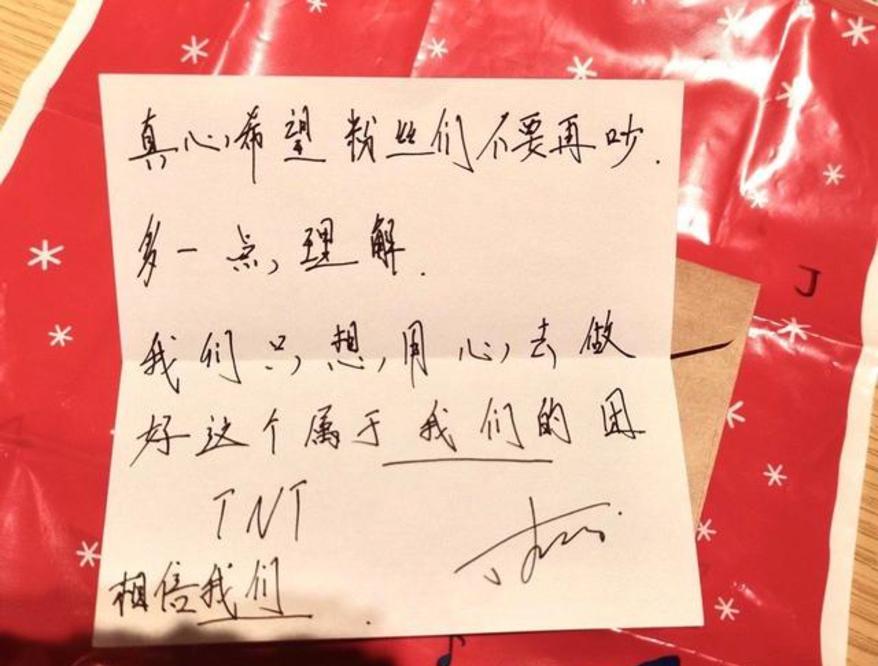 真心希望粉丝们不要再吵.
多一点理解.
我们只想用心去做
好这个属于我们的团
TNT
相信我们.
J